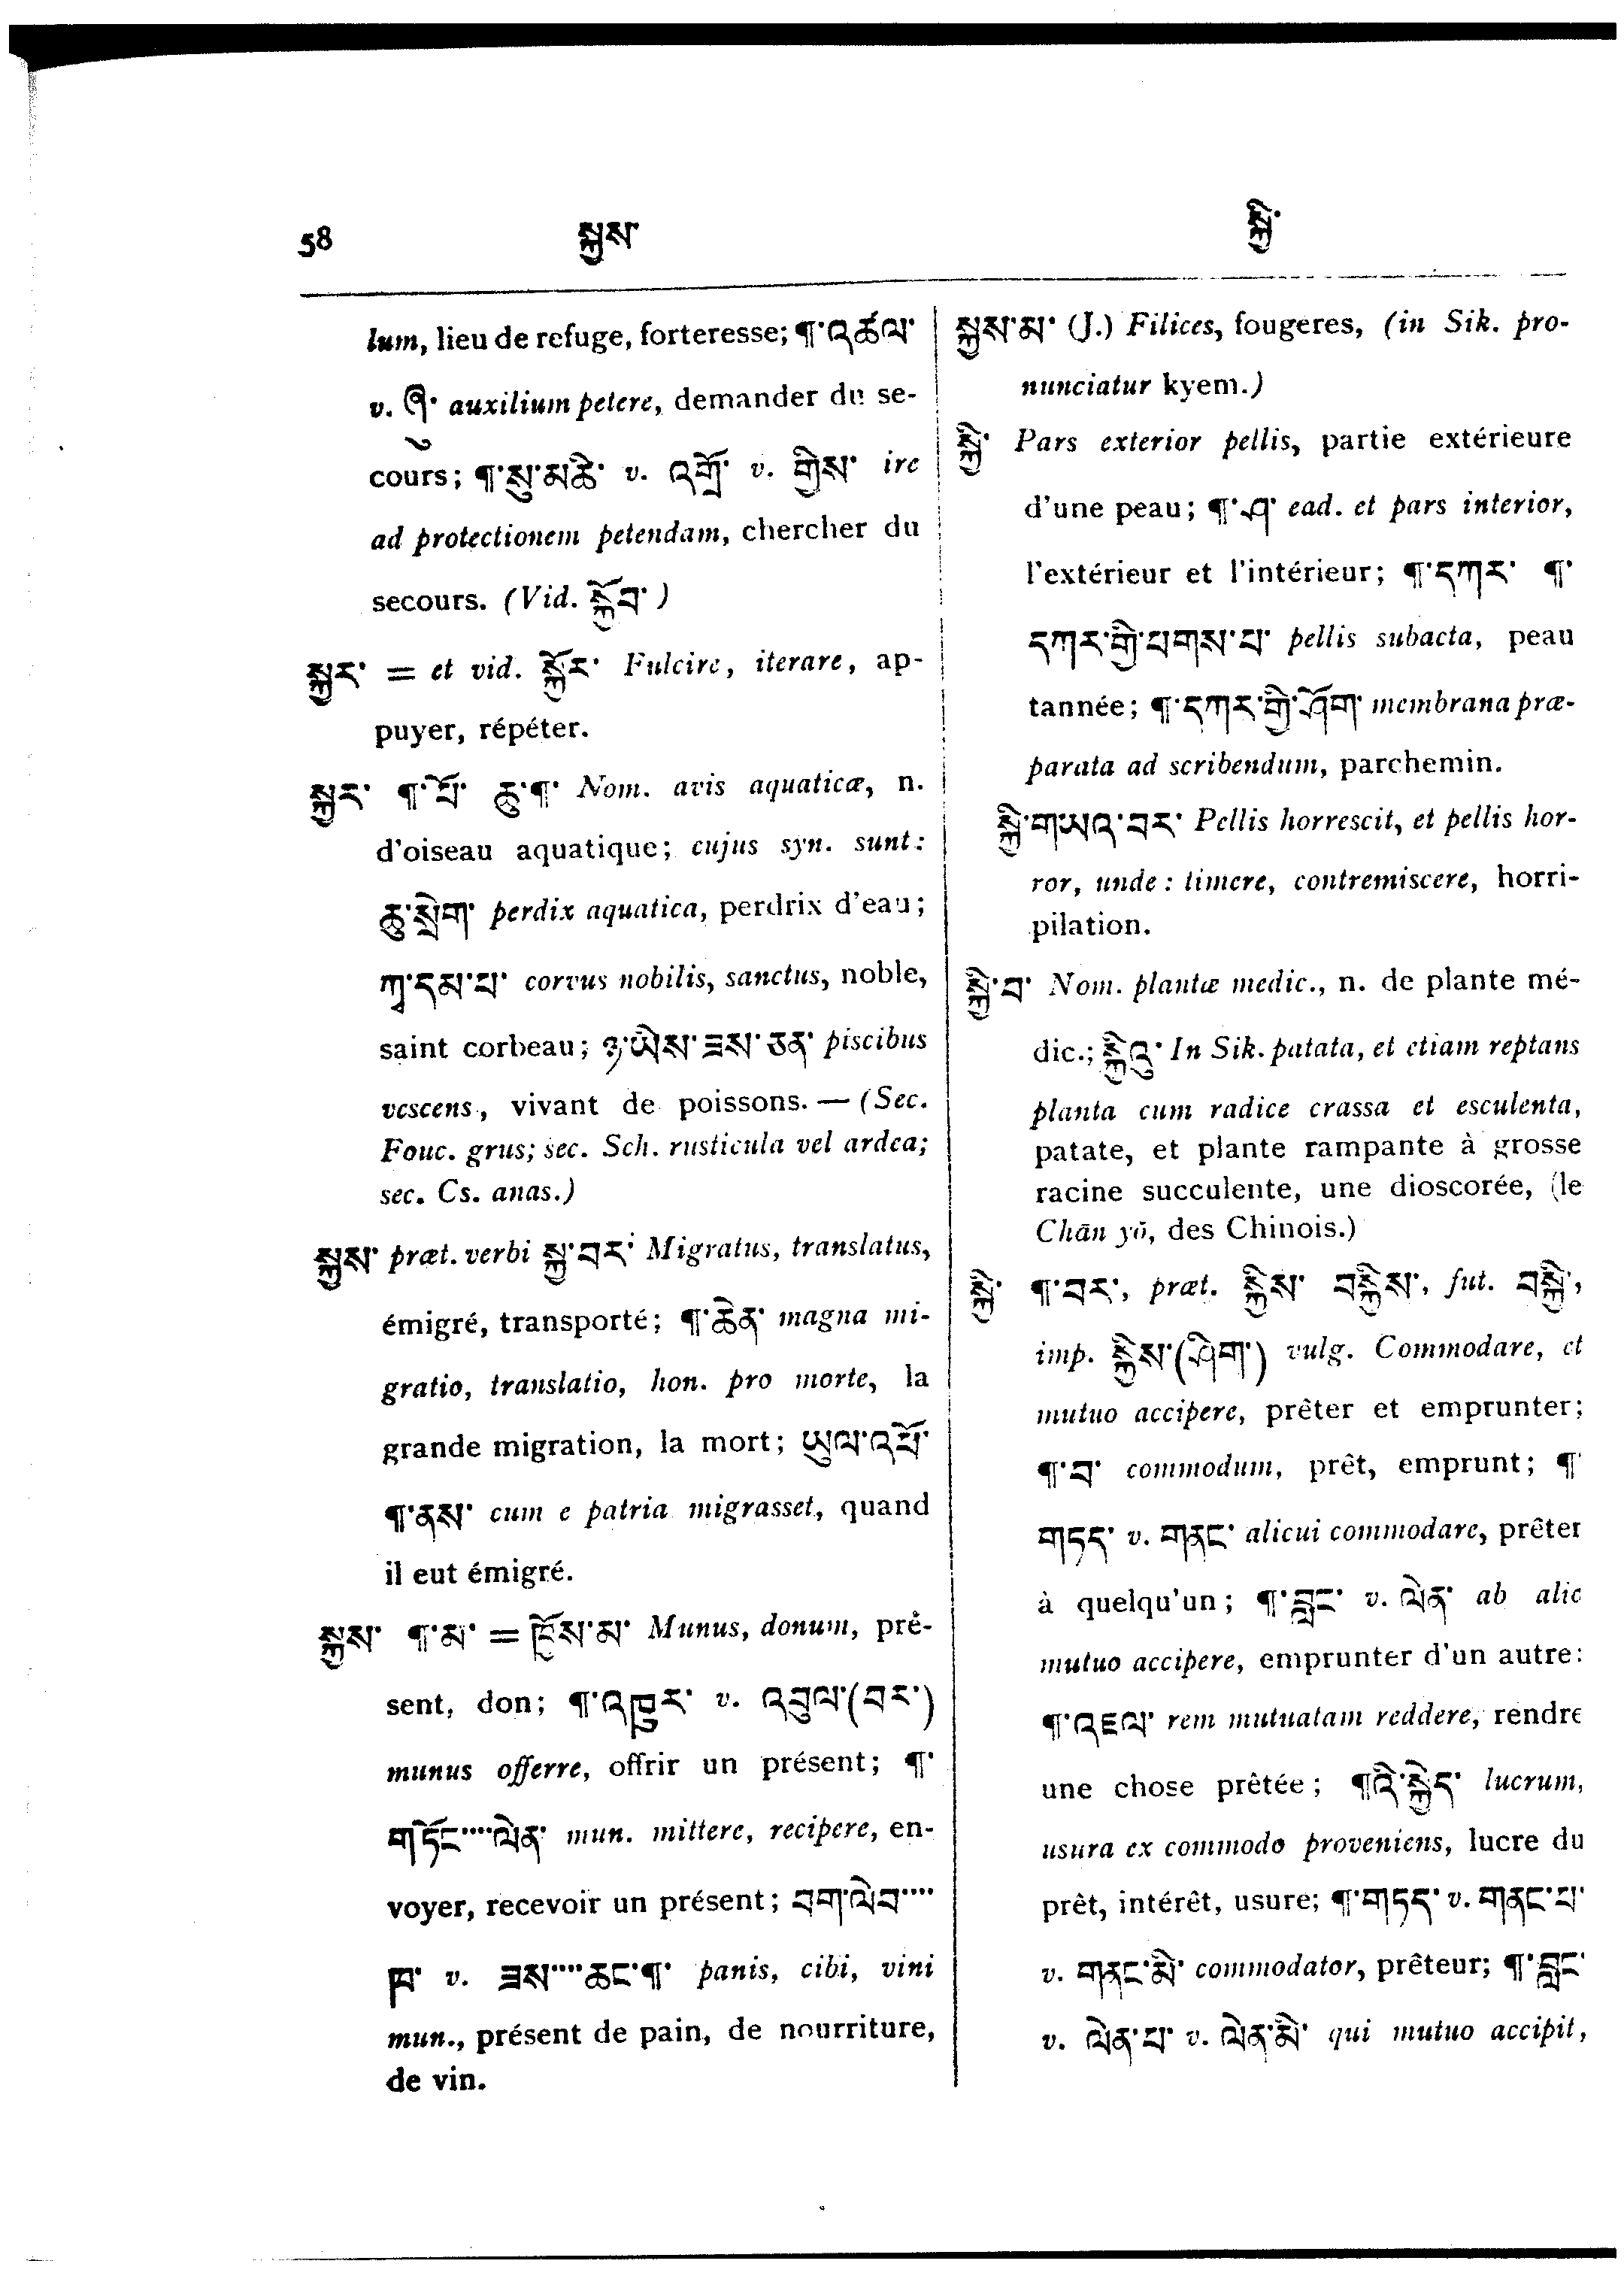 58 སྐྱས་ སྐྱི་
lum, lieu de refuge, forteresse; ¶་འཚལ་
v. ཞུ་ auxilium petere, demander du se-
cours; ¶་སུ་མཆི་ v. འགྲོ་ v. གྱིས་ ire
ad protectionem petendam, chercher du
secours. (Vid. སྐྱོབ་ )
སྐྱར་ = et vid. སྐྱོར་ Fulcire, iterare, ap-
puyer, répéter.
སྐྱར་ ¶་པོ་ ཆུ་¶་ Nom. avis aquaticæ, n.
d'oiseau aquatique; cujus syn. sunt:
ཆུ་སྲེག་ perdix aquatica, perdrix d'eau;
ཀྭ་དམ་པ་ corvus nobilis, sanctus, noble,
saint corbeau; ཉ་ཡིས་ཟས་ཅན་ piscibus
vescens, vivant de poissons. — (Sec.
Fouc. grus; sec. Sch. rusticula vel ardea;
sec. Cs. anas.)
སྐྱས་ præt. verbi སྐྱ་བར་ Migratus, translatus,
émigré, transporté; ¶་ཆེན་ magna mi-
gratio, translatio, hon. pro morte, la
grande migration, la mort; ཡུལ་འཕོ་
¶་ནས་ cum e patria migrasset, quand
il eut émigré.
སྐྱས་ ¶་མ་ = སྐྱོས་མ་ Munus, donum, pré-
sent, don; ¶་འཁུར་ v. འབུལ་(བར་)
munus offerre, offrir un présent; ¶་
གཏོང་····ལེན་ mun. mittere, recipere, en-
voyer, recevoir un présent; བག་ལེབ་····
ཁ་ v. ཟས་····ཆང་¶་ panis, cibi, vini
mun., présent de pain, de nourriture,
de vin.
སྐྱས་མ་ (J.) Filices, fougeres, (in Sik. pro-
nunciatur kyem.)
སྐྱི་ Pars exterior pellis, partie extérieure
d'une peau; ¶་ཤ་ ead. et pars interior,
l'extérieur et l'intérieur; ¶་དཀར་ ¶་
དཀར་གྱི་པགས་པ་ pellis subacta, peau
tannée; ¶་དཀར་གྱི་ཤོག་ membrana præ-
parata ad scribendum, parchemin.
སྐྱི་གཡའ་བར་ Pellis horrescit, et pellis hor-
ror, unde: timere, contremiscere, horri-
pilation.
སྐྱི་བ་ Nom. plantæ medic., n. de plante mé-
dic.; སྐྱིའུ་ In Sik. patata, et etiam reptans
planta cum radice crassa et esculenta,
patate, et plante rampante à grosse
racine succulente, une dioscorée, (le
Chān yŏ, des Chinois.)
སྐྱི་ ¶་བར་, præt. སྐྱིས་ བསྐྱིས་, fut. བསྐྱི་,
imp. སྐྱིས་(ཤིག་) vulg. Commodare, et
mutuo accipere, prêter et emprunter;
¶་བ་ commodum, prêt, emprunt; ¶་
གཏད་ v. གནང་ alicui commodare, prêter
à quelqu'un; ¶་བླང་ v. ལེན་ ab alic
mutuo accipere, emprunter d'un autre:
¶་འཇལ་ rem mutuatam reddere, rendre
une chose prêtée; ¶འི་སྐྱེད་ lucrum,
usura ex commodo proveniens, lucre du
prêt, intérêt, usure; ¶་གཏད་ v. གནང་པ་
v. གནང་མི་ commodator, prêteur; ¶་བླང་
v. ལེན་པ་ v. ལེན་མི་ qui mutuo accipit,